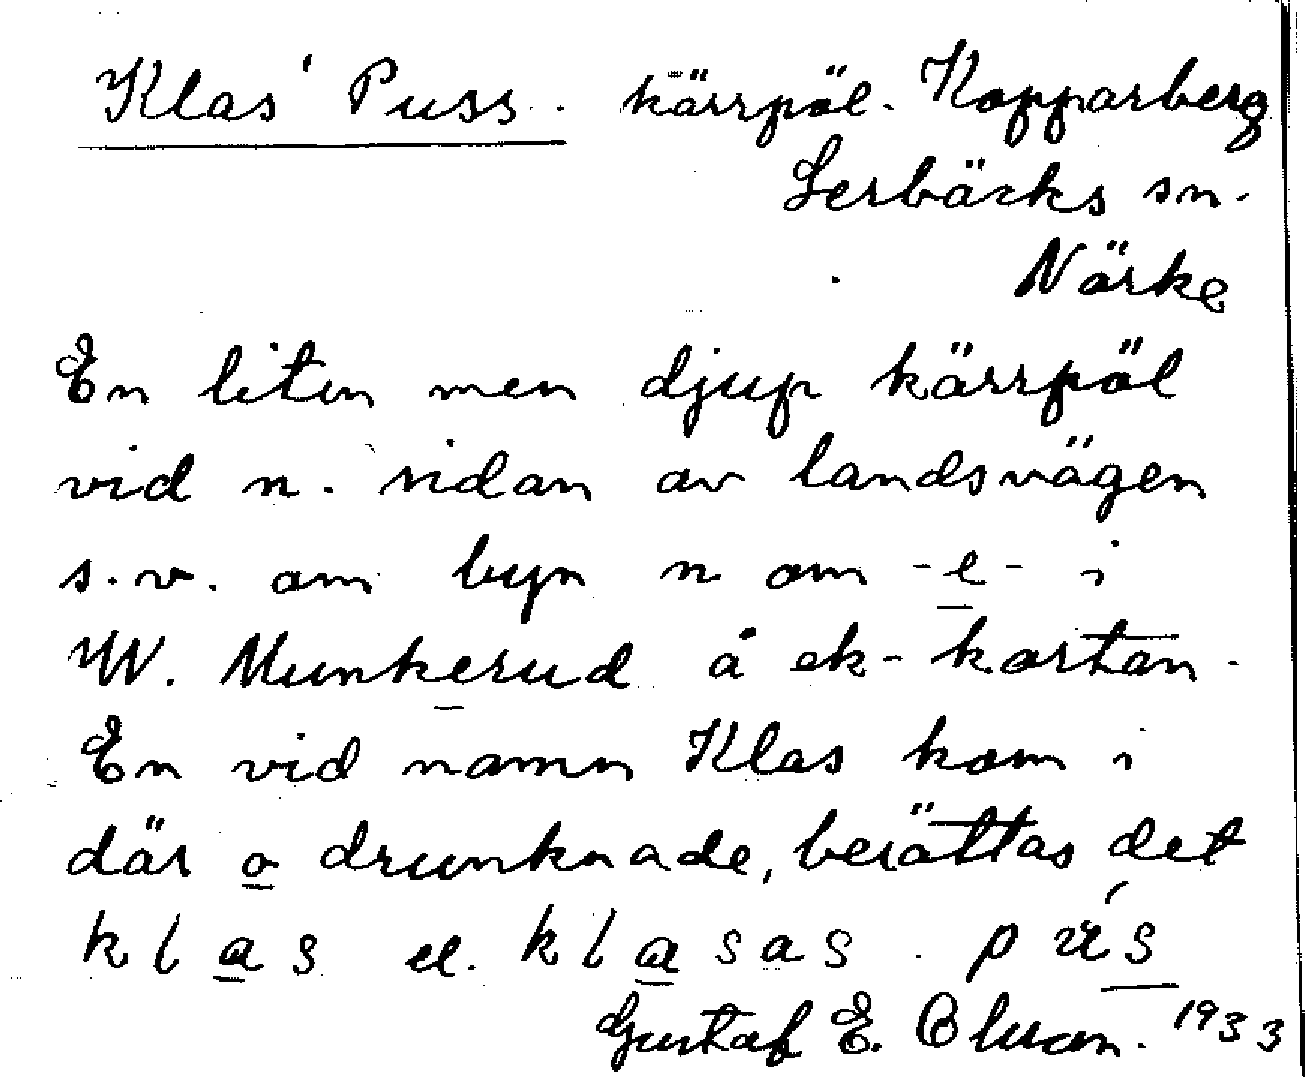 Klas' Puss. kärrpöl. Kopparberg
Lerbäcks sn.
Närke
En liten men djup kärrpöl
vid n. sidan av landsvägen
s.v. om byn n om -e- i
W. Munkerud å ek-kartan.
En vid namn Klas kom i
där o drunknade, berättas det
klas el. klasas. pús
Gustaf E. 1933